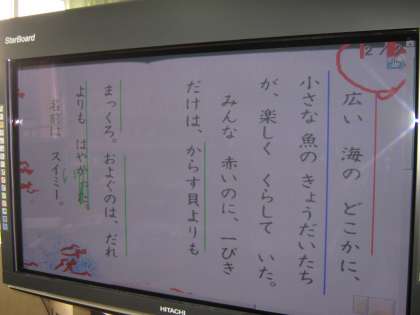 StarBoard
広い 海の どこかに、
小さな 魚の きょうだいたち
が、楽しく くらして いた。
みんな 赤いのに、一ぴき
だけは、からす貝よりも
まっくろ。およぐのは、だれ
よりも はやかった。
名前は スイミー。
HITACHI